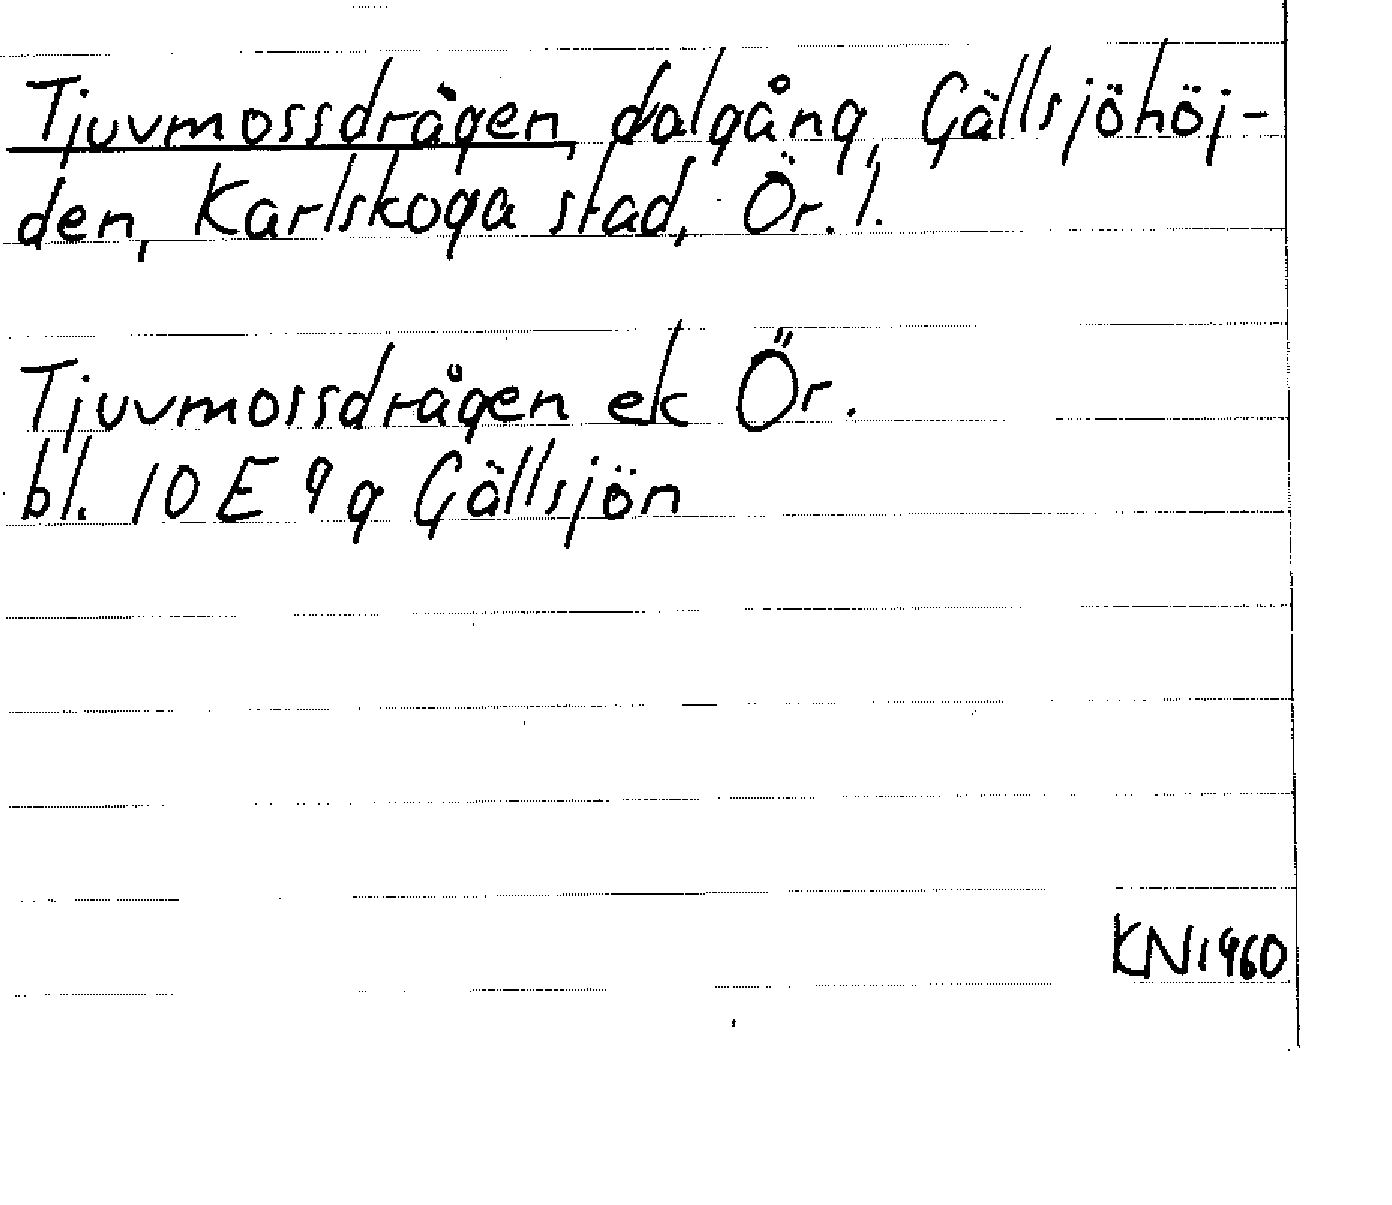 Tjuvmossdrågen, dalgång, Gällsjöhöj-
den, Karlskoga stad, Ör. l.
Tjuvmossdrågen ek Ör.
bl. 10 E 9 g Gällsjön
KN1960